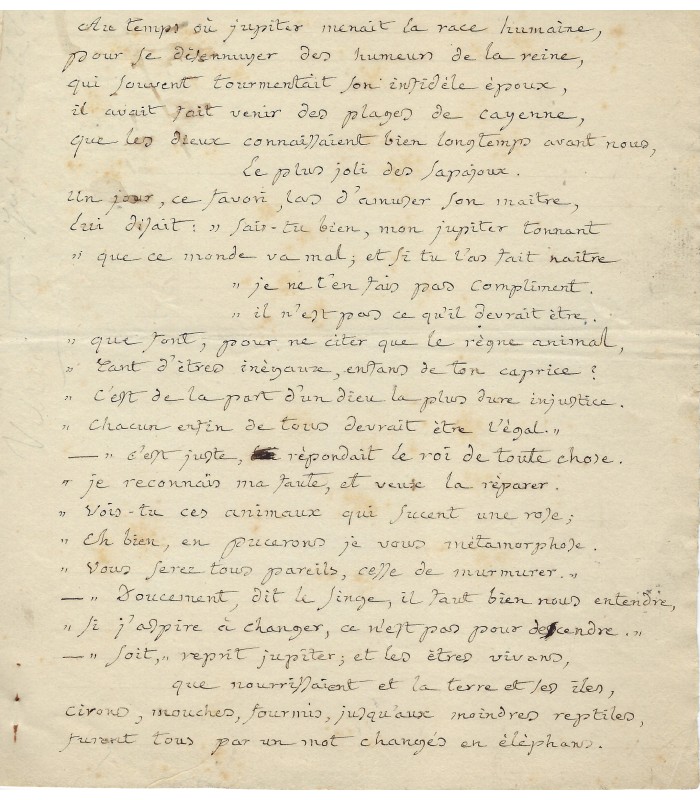 Au temps où jupiter menait la race humaine,
pour se désennuyer des humeurs de la reine,
qui souvent tourmentait son infidèle époux,
il avait fait venir des plages de cayenne,
que les dieux connaissaient bien longtemps avant nous,
Le plus joli des sapajoux.
Un jour, ce favori, las d'amuser son maitre,
Lui disait : " sais-tu bien, mon jupiter tonnant
" que ce monde va mal; et si tu l'as fait naitre
" je ne t'en fais pas compliment.
" il n'est pas ce qu'il devrait être.
" que font, pour ne citer que le règne animal,
" Tant d'êtres inégaux, enfans de ton caprice ?
" C'est de la part d'un dieu la plus dure injustice.
" Chacun enfin de tous devrait être l'égal."
—" c'est juste, répondait le roi de toute chose.
" je reconnais ma faute, et veux la réparer.
" Vois-tu ces animaux qui sucent une rose;
" Eh bien, en pucerons je vous métamorphose.
" Vous serez tous pareils, cesse de murmurer."
—" Doucement, dit le singe, il faut bien nous entendre,
" si j'aspire à changer, ce n'est pas pour descendre."
—" soit," reprit jupiter; et les êtres vivans,
que nourrissaient et la terre et ses îles,
cirons, mouches, fourmis, jusqu'aux moindres reptiles,
furent tous par un mot changés en éléphans.